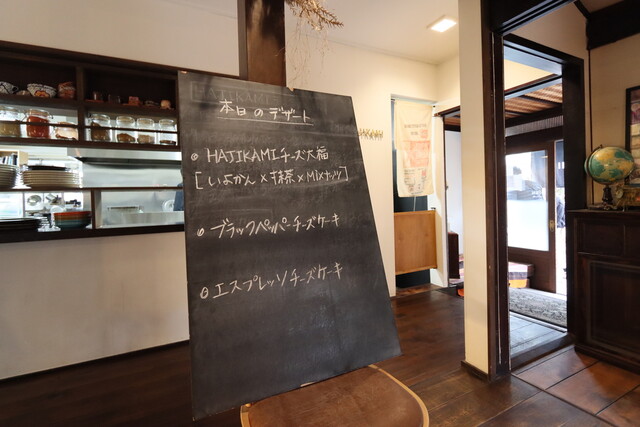 本日のデザート
HAJIKAMIチーズ大福
[いよかん×抹茶×Mixナッツ]
ブラックペッパーチーズケーキ
エスプレッソチーズケーキ